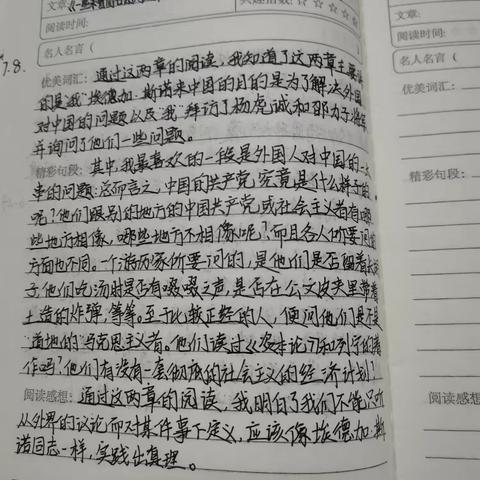 文章：《一些未有回答的
兴趣指数：☆☆☆☆☆
文章：
阅读时间：
阅读时间：
名人名言（
名人名言（
7.8.
优美词汇：通过这两章的阅读，我知道了这两章主要讲
的是"我"埃德加·斯诺来中国的目的是为了解决外国
对中国的问题以及"我"拜访了杨虎诚和邵力子将军
并询问了他们一些问题。
精彩句段：其中，我最喜欢的一段是外国人对中国的一大
串的问题：总而言之，中国的共产党究竟是什么样子的
呢？他们跟别的地方的中国共产党或社会主义者有哪
些地方相像，哪些地方不相像呢？而且各人你要问的
方面也不同。一个游历家你要问的，是他们是否留着长胡
子，他们吃汤时是否有啜啜之声，是否在公文皮夹里带着
土造的炸弹，等等。至于比较正经的人，便问他们是不是
"道地的"马克思主义者。他们读过《资本论》和列宁的著
作吗？他们有没有一套彻底的社会主义的经济计划？
阅读感想：通过这两章的阅读，我明白了我们不能只听
从外界的议论而对某件事下定义，应该像埃德加·斯
诺同志一样，实践出真理。
优美词汇：
精彩句段：
阅读感想：